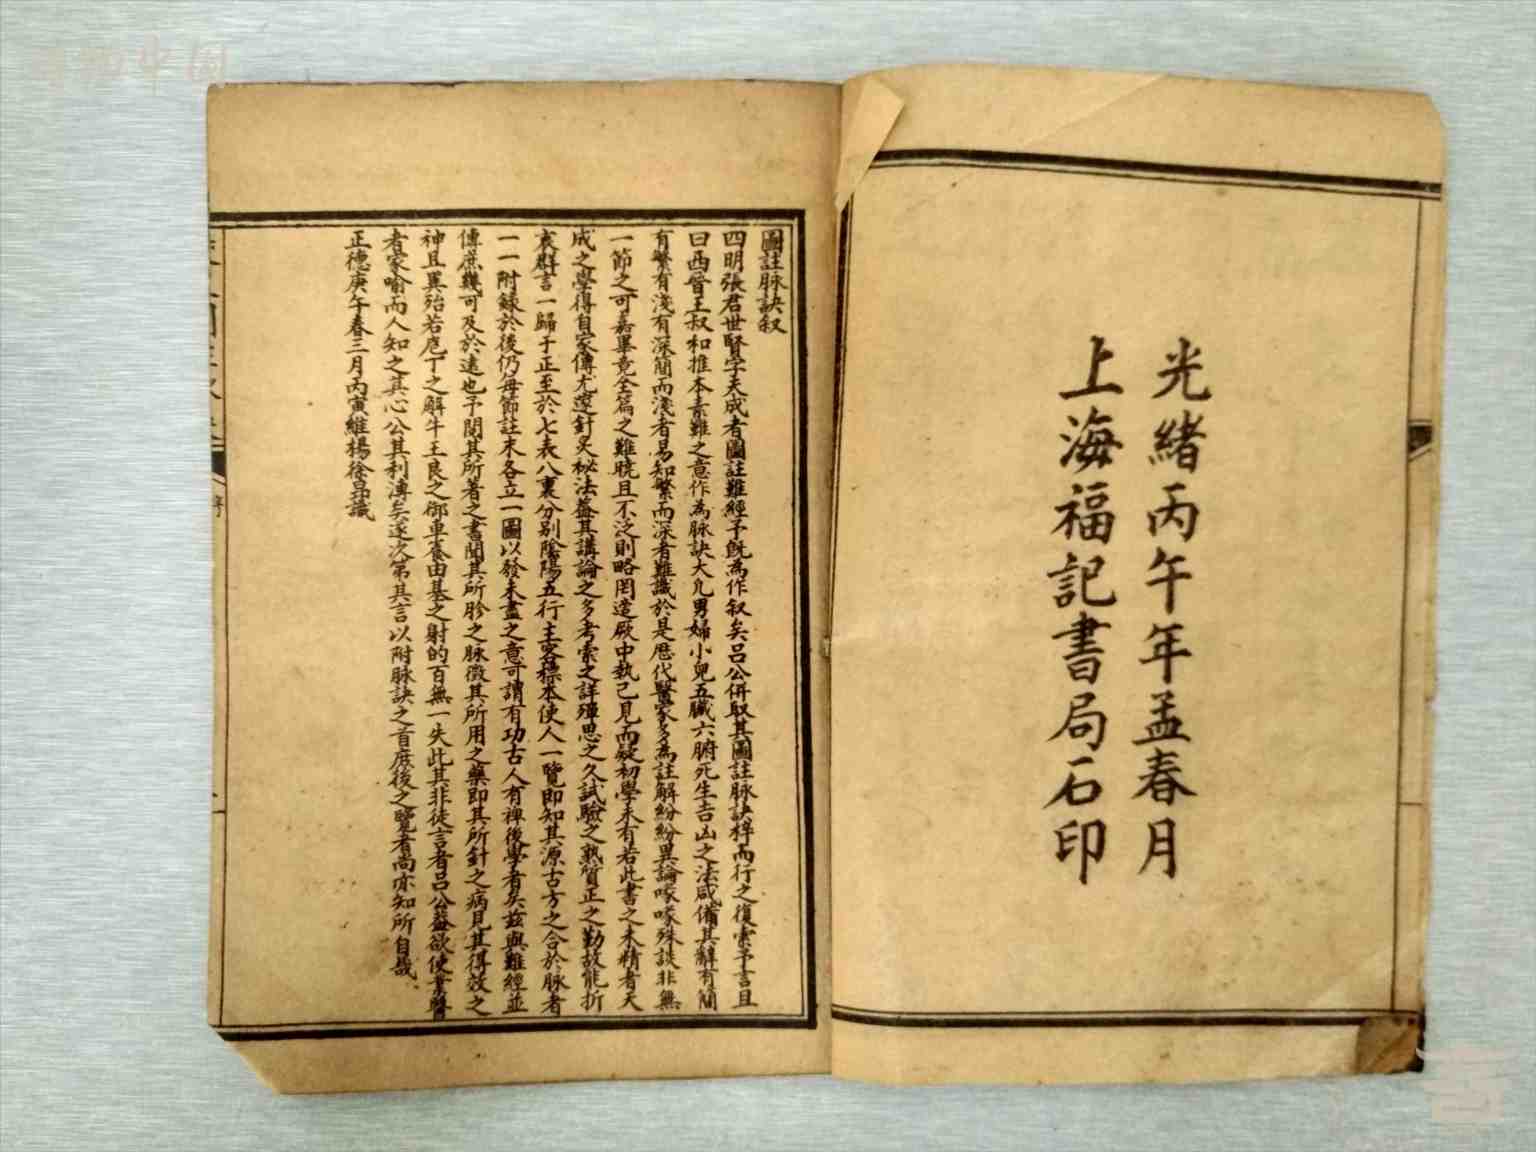 光緒丙午年孟春月
上海福記書局石印
圖註脉訣叙
四明張君世賢字天成者圖註難經予既為作叙矣吕公併取其圖註脉訣梓而行之復索予言且
曰西晉王叔和推本素難之意作為脉訣大凡男婦小兒五臟六腑死生吉凶之法咸備其辭有簡
有繁有淺有深簡而淺者易知繁而深者難識於是歷代醫家多為註解紛紛異論啄啄殊談非無
一節之可嘉畢竟全篇之難曉且不泛則略罔遵厥中執己見而疑初學未有若此書之未精者天
成之學得自家傳尤邃針灸秘法葢其講論之多考索之詳殫思之久試驗之熟質正之勤故能折
衷群言一歸于正至於七表八裏分别陰陽五行主客標本使人一覽即知其源古方之合於脉者
一一附錄於後仍每節註末各立一圖以發未盡之意可謂有功古人有裨後學者矣兹與難經並
傳庶幾可及於遠也予閱其所著之書聞其所胗之脉徵其所用之藥即其所針之病見其得效之
神且異殆若庖丁之解牛王良之御車養由基之射的百無一失此其非徒言者吕公葢欲使業醫
者家喻而人知之其心公其利溥矣遂次第其言以附脉訣之首庶後之覽者尚亦知所自哉
正德庚午春三月丙寅維楊徐昂識